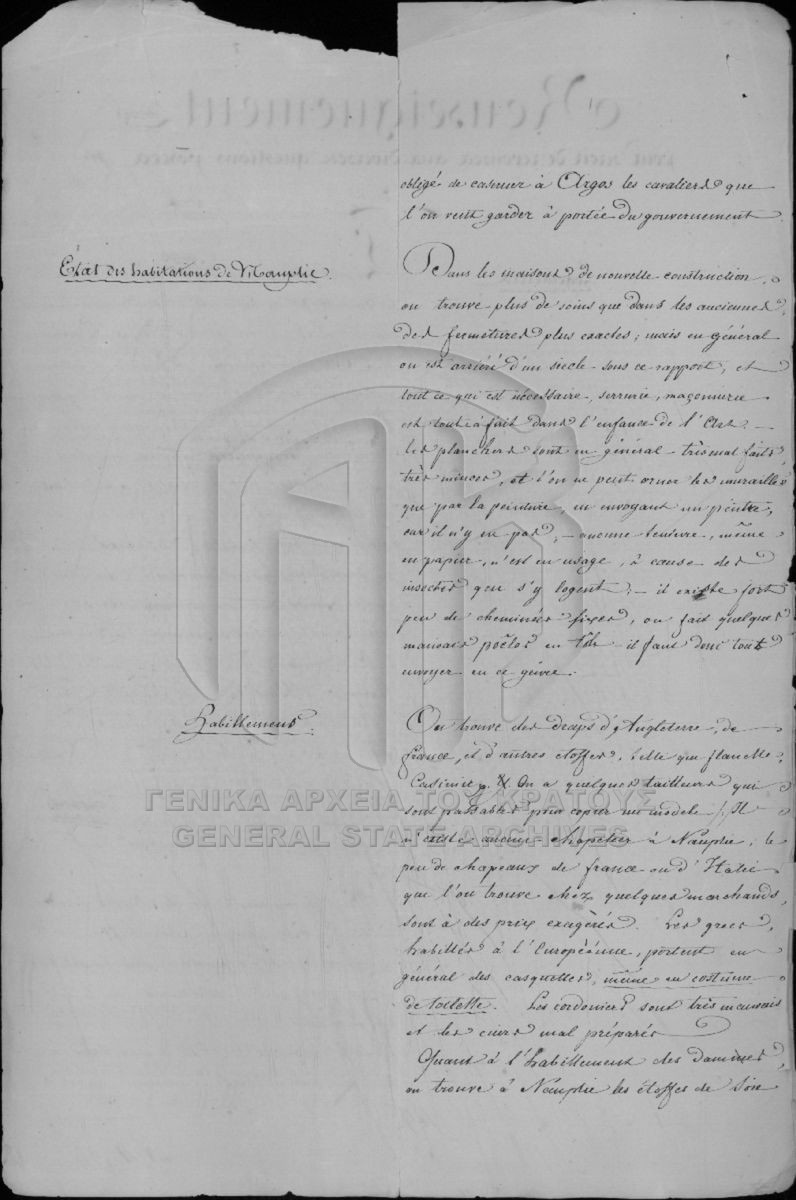 obligé de caserner à Argos les cavaliers que
l'on veut garder à portée du gouvernement
État des habitations de Nauplie.
Dans les maisons de nouvelle construction,
on trouve plus de soins que dans les anciennes,
des fermetures plus exactes; mais en général
on est arriéré d'un siècle sous ce rapport, et
tout ce qui est nécessaire, serrurie, maçonnerie
est tout à fait dans l'enfance de l'Art. —
les planchers sont en général très mal faits
très minces, et l'on ne peut orner les murailles
que par la peinture, en envoyant un peintre,
car il n'y en pas, — aucune tenture, même
en papier, n'est en usage, à cause des
insectes qui s'y logent; — il existe fort
peu de cheminées fixes, on fait quelques
mauvais poëles en tôle il faut donc tout
envoyer en ce genre.
Habillement.
On trouve des draps d'Angleterre, de
france, et d'autres étoffes, telle que flanelle,
Casimir p. X. On a quelques tailleurs qui
sont passables pour copier un modele /. Il
n'existe aucun chapelier à Nauplie; le
peu de chapeaux de france ou d'Italie
que l'on trouve chez quelques marchands,
sont à des prix exagérés. Les grecs,
habillés à l'Européenne, portent en
général des casquettes, même en costume
de toilette. Les cordoniers sont très mauvais
et les cuirs mal préparés
Quant à l'habillement des Dammes,
on trouve à Nauplie les étoffes de Soie
ΓΕΝΙΚΑ ΑΡΧΕΙΑ ΤΟΥ ΚΡΑΤΟΥΣ
GENERAL STATE ARCHIVES